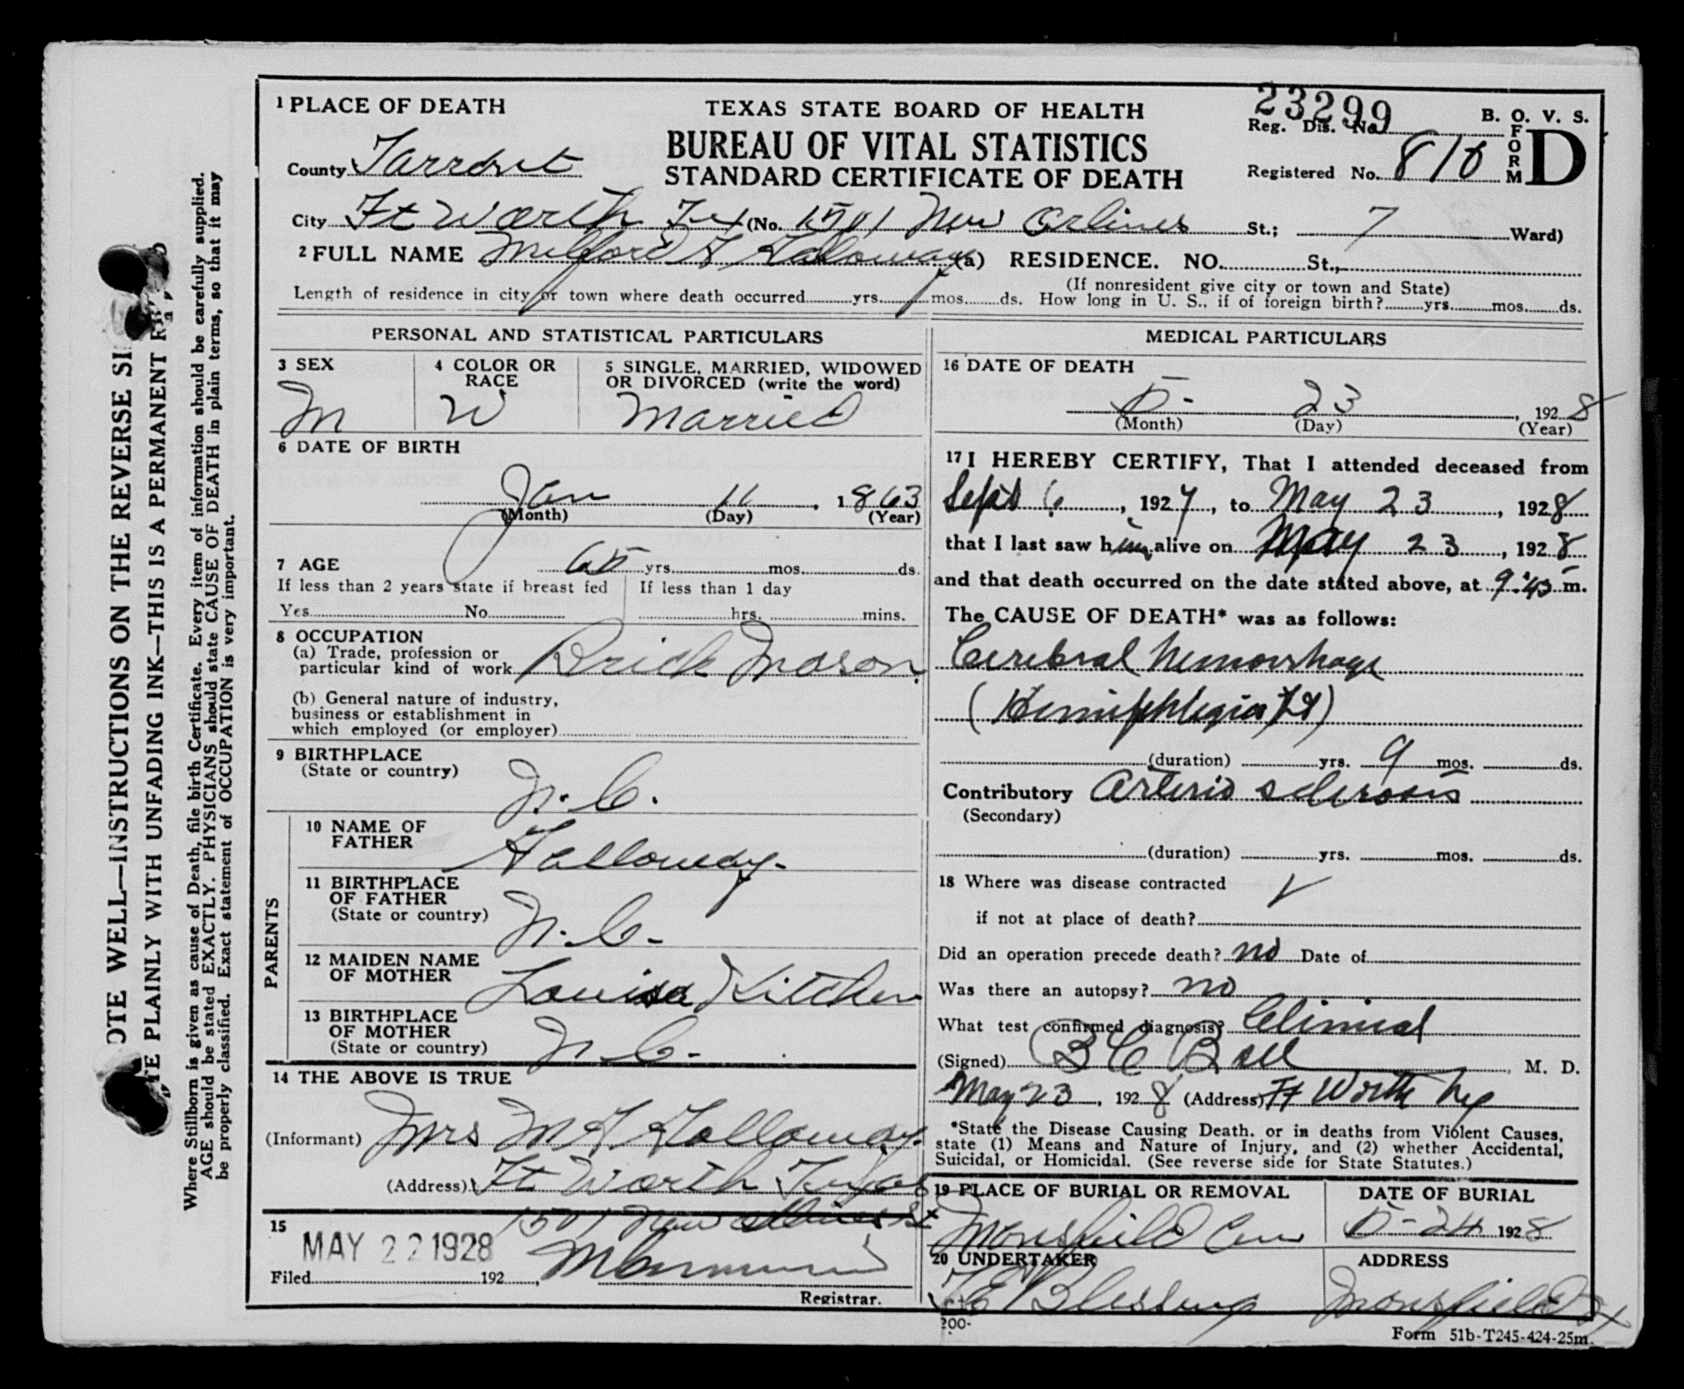 1 PLACE OF DEATH
TEXAS STATE BOARD OF HEALTH
BUREAU OF VITAL STATISTICS
STANDARD CERTIFICATE OF DEATH
23299
Reg. Dis. No.
B. O. V. S.
FORM D
Registered No. 810
County Tarrant
City Ft Worth Tex (No. 1501 New Orlines St.; 7 Ward)
2 FULL NAME Milford F Galloway (a) RESIDENCE. NO. St.,
(If nonresident give city or town and State)
Length of residence in city or town where death occurred yrs. mos. ds. How long in U. S., if of foreign birth? yrs. mos. ds.
PERSONAL AND STATISTICAL PARTICULARS
3 SEX
M
4 COLOR OR RACE
W
5 SINGLE, MARRIED, WIDOWED
OR DIVORCED (write the word)
Married
6 DATE OF BIRTH
Jan 11, 1863
(Month) (Day) (Year)
7 AGE 65 yrs. mos. ds.
If less than 2 years state if breast fed
Yes No
If less than 1 day
hrs. mins.
8 OCCUPATION
(a) Trade, profession or
particular kind of work Brick Mason
(b) General nature of industry,
business or establishment in
which employed (or employer)
9 BIRTHPLACE
(State or country)
N. C.
PARENTS
10 NAME OF
FATHER
Galloway
11 BIRTHPLACE
OF FATHER
(State or country)
N. C.
12 MAIDEN NAME
OF MOTHER
Louisa Kitchen
13 BIRTHPLACE
OF MOTHER
(State or country)
N. C.
14 THE ABOVE IS TRUE
(Informant) Mrs M F Galloway
(Address) Ft Worth Texas
1501 New
15
MAY 22 1928
Filed 192
Registrar.
MEDICAL PARTICULARS
16 DATE OF DEATH
5- 23, 1928
(Month) (Day) (Year)
17 I HEREBY CERTIFY, That I attended deceased from
Sept 6, 1927, to May 23, 1928
that I last saw him alive on May 23, 1928
and that death occurred on the date stated above, at 9:45 m.
The CAUSE OF DEATH* was as follows:
Cerebral hemorrhage
(Hemiphlegia
(duration) yrs. 9 mos. ds.
Contributory Arterio sclerosis
(Secondary)
(duration) yrs. mos. ds.
18 Where was disease contracted
if not at place of death?
Did an operation precede death? no Date of
Was there an autopsy? no
What test confirmed diagnosis? Clinical
(Signed) B C Ball, M. D.
May 23, 1928 (Address) Ft Worth Tex
*State the Disease Causing Death, or in deaths from Violent Causes,
state (1) Means and Nature of Injury, and (2) whether Accidental,
Suicidal, or Homicidal. (See reverse side for State Statutes.)
19 PLACE OF BURIAL OR REMOVAL
Mansfield Cem
DATE OF BURIAL
5-24 1928
20 UNDERTAKER
Blessing
ADDRESS
Mansfield Tx
200-
Form 51b-T245-424-25m.
OTE WELL—INSTRUCTIONS ON THE REVERSE SI
TE PLAINLY WITH UNFADING INK—THIS IS A PERMANENT
Where Stillborn is given as cause of Death, file birth Certificate. Every item of information should be carefully supplied.
AGE should be stated EXACTLY. PHYSICIANS should state CAUSE OF DEATH in plain terms, so that it may
be properly classified. Exact statement of OCCUPATION is very important.